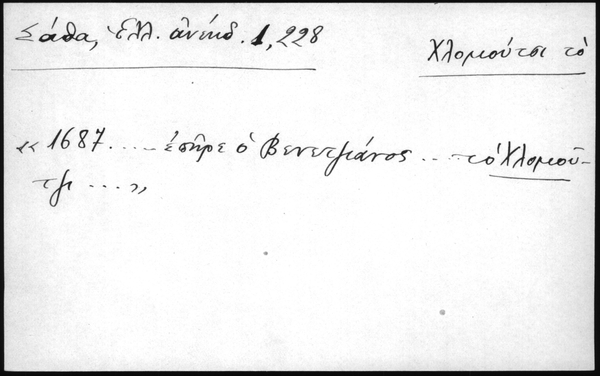 Σάθα, Ἑλλ. ἀνέκδ. 1, 228
Χλομούτσι τὸ
«1687 ..... ἐπῆρε ὁ Βενετζιάνος ... τὸ Χλομοῦ-
τζι ....»